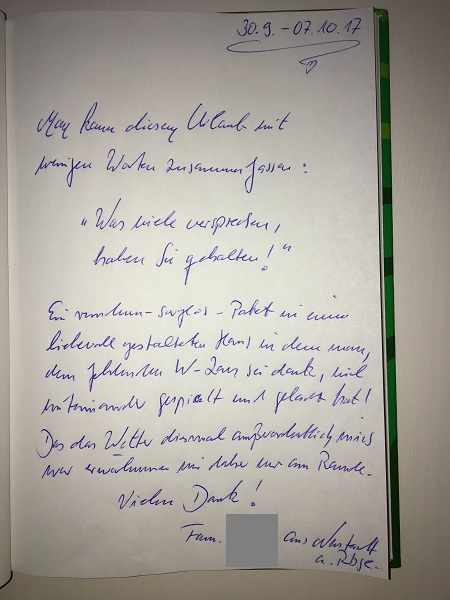 30.9. - 07.10.17
Man kann diesen Urlaub mit
wenigen Worten zusammenfassen:
"Was viele versprechen,
haben Sie gehalten!"
Ein rundum-sorglos-Paket in einem
liebevoll gestalteten Haus in dem man,
dem fehlenden W-Lan sei dank, viel
miteinander gespielt und gelacht hat!
Das das Wetter diesmal außerordentlich mies
war erwähnen wir daher nur am Rande.
Vielen Dank!
Fam. aus Neustadt
a. Rbge.